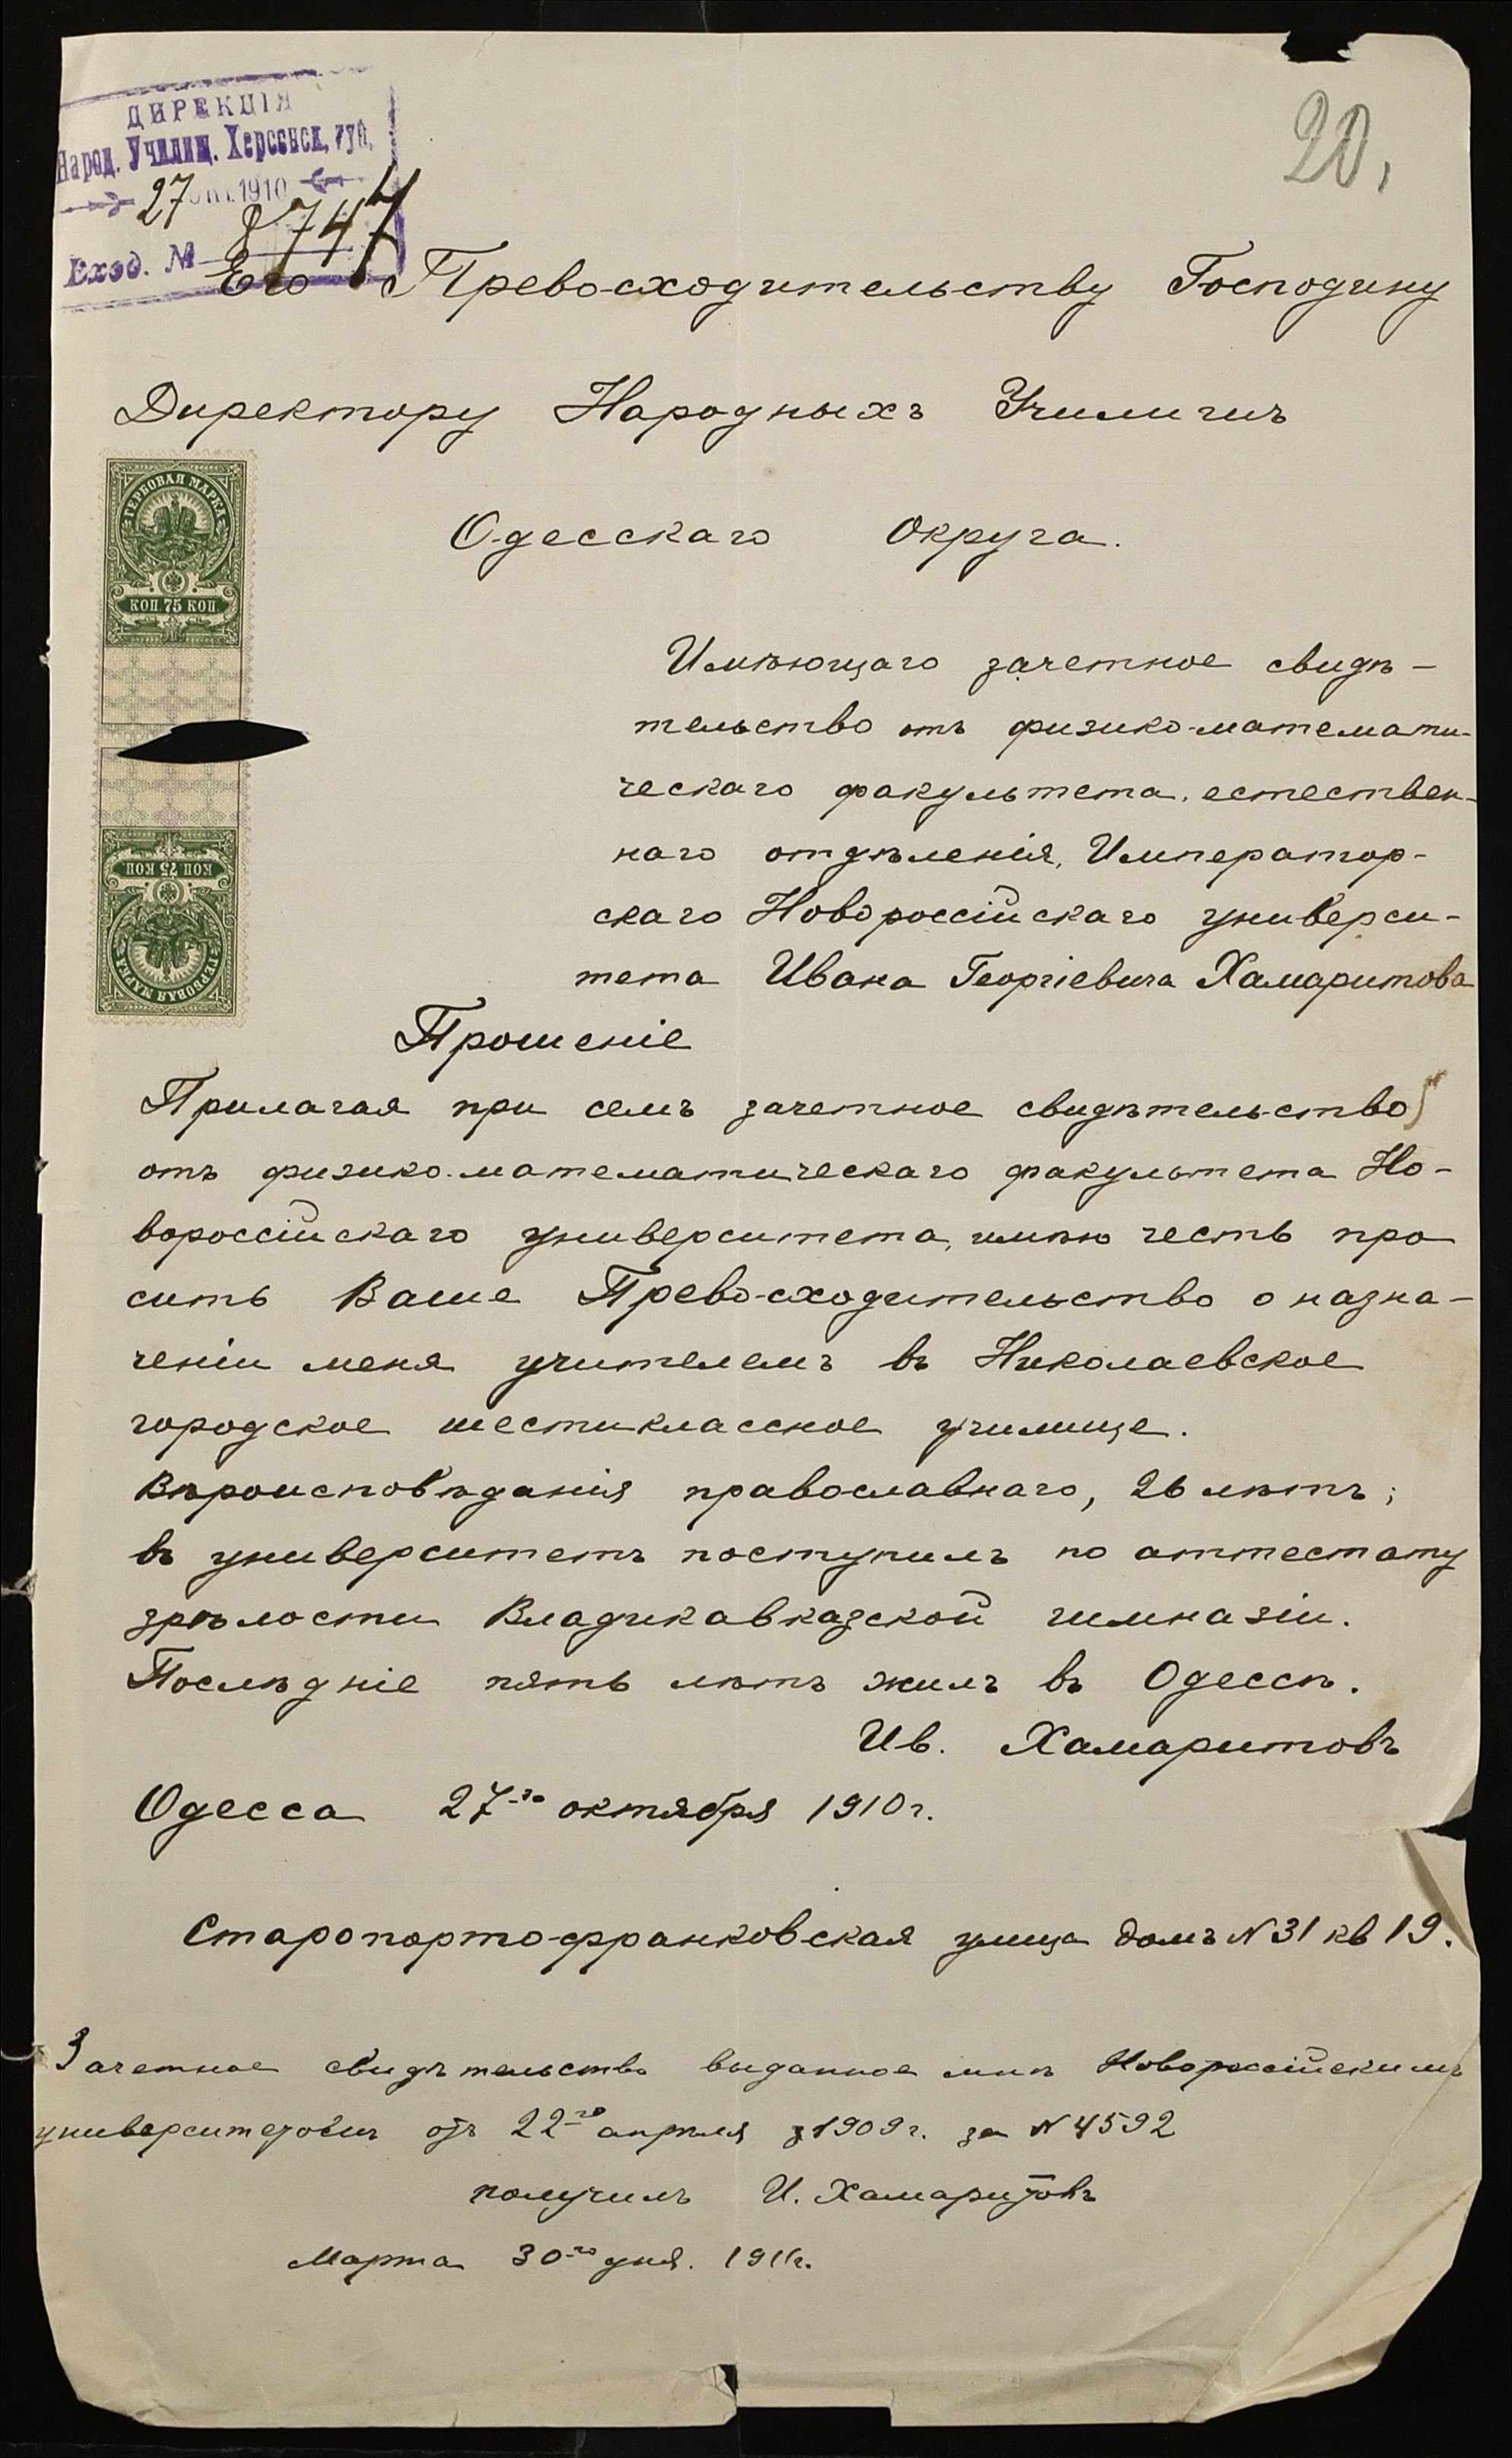 ДИРЕКЦІЯ
Народ. Училищ. Херсонск. губ.
27 ОКТ. 1910
Вход. № 8747
20.
Его Превосходительству Господину
Директору Народныхъ Училищъ
Одесскаго Округа.
ГЕРБОВАЯ МАРКА
КОП. 75 КОП.
КОП 75 КОП
ГЕРБОВАЯ МАРКА
Имѣющаго зачетное свидѣ-
тельство отъ физико-математи-
ческаго факультета, естествен-
наго отдѣленія, Император-
скаго Новороссійскаго универси-
тета Ивана Георгіевича Хамаритова
Прошеніе
Прилагая при семъ зачетное свидѣтельство
отъ физико-математическаго факультета Но-
вороссійскаго университета, имѣю честь про
сить Ваше Превосходительство о назна-
ченіи меня учителемъ въ Николаевское
городское шестиклассное училище.
Вѣроисповѣданія православнаго, 26 лѣтъ;
въ университетъ поступилъ по аттестату
зрѣлости Владикавказской гимназіи.
Послѣдніе пять лѣтъ жилъ въ Одессѣ.
Ив. Хамаритовъ
Одесса 27-го октября 1910 г.
Старопортофранковская улица домъ N 31 кв 19.
Зачетное свидѣтельство выданное мнѣ Новороссійскимъ
университетомъ отъ 22-го апрѣля 1909 г. за N 4592
получилъ И. Хамаритовъ
Марта 30-го дня. 1911 г.